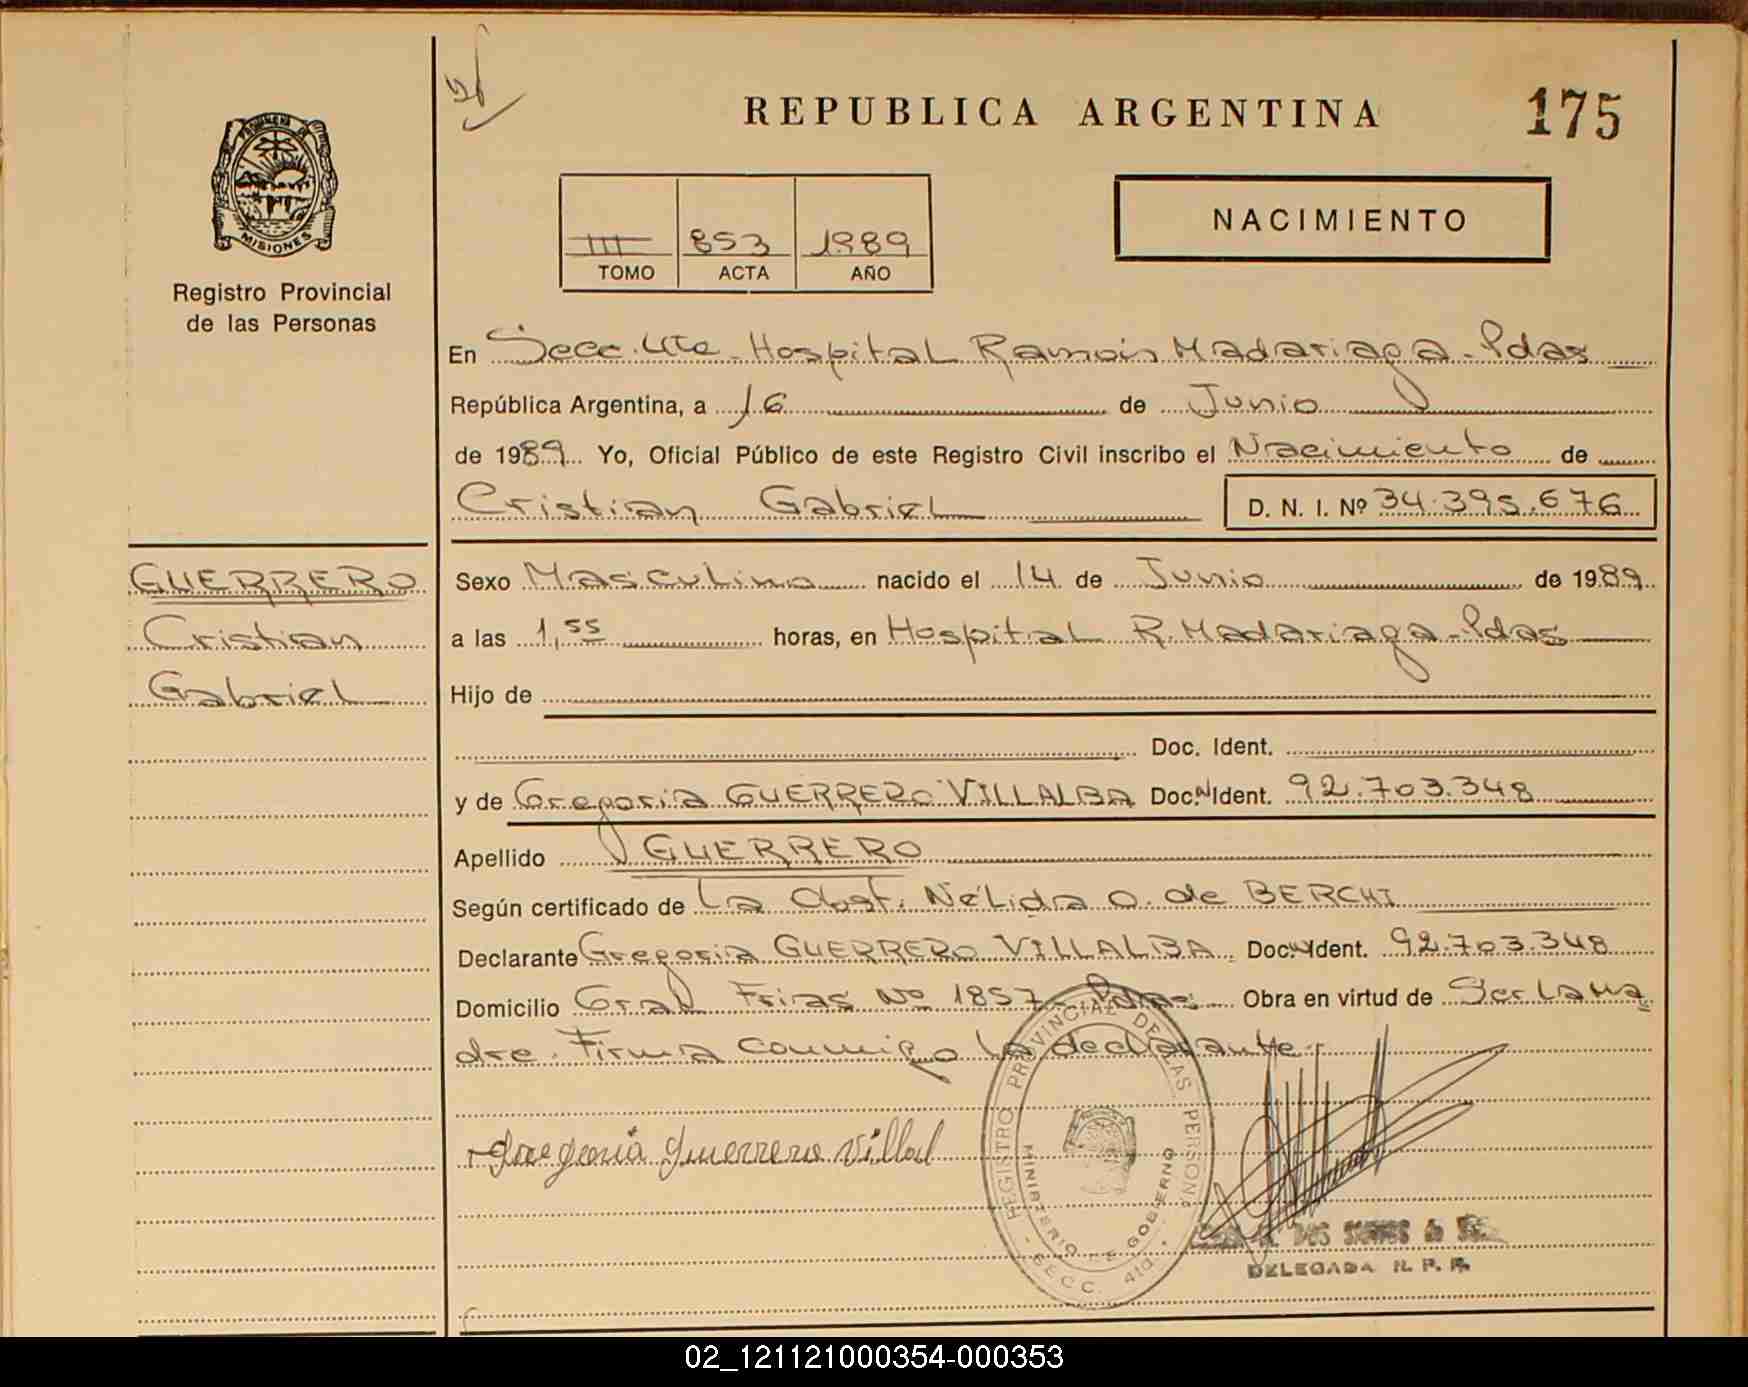 REPUBLICA ARGENTINA
175
PROVINCIA DE
MISIONES
Registro Provincial
de las Personas
III 853 1989
TOMO ACTA AÑO
NACIMIENTO
En Secc. 4ta - Hospital Ramón Madariaga - Pdas
República Argentina, a 16 de Junio
de 1989 Yo, Oficial Público de este Registro Civil inscribo el Nacimiento de
Cristian Gabriel D. N. I. Nº 34.395.676
GUERRERO
Cristian
Gabriel
Sexo Masculino nacido el 14 de Junio de 1989
a las 1,55 horas, en Hospital R. Madariaga - Pdas
Hijo de
Doc. Ident.
y de Gregoria GUERRERO VILLALBA Doc. Ident. 92.703.348
Apellido GUERRERO
Según certificado de La Obst. Nélida O. de BERCHI
Declarante Gregoria GUERRERO VILLALBA Doc. Ident. 92.703.348
Domicilio Gral Frias Nº 1857 - Pdas Obra en virtud de Ser la ma
dre. Firma conmigo la declarante
Gregoria Guerrero Villal
REGISTRO PROVINCIAL DE LAS PERSONAS
MINISTERIO DE GOBIERNO
SECC. 4ta.
DOS SANTOS de
DELEGADA R. P. P.
02_121121000354-000353